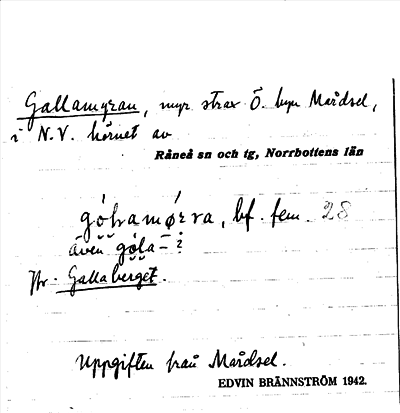 Gallamyran, myr strax Ö. byn Mårdsel,
i N.V. hörnet av
Råneå sn och tg, Norrbottens län
bf. fem. 28
även
Jfr. Gallaberget.
Uppgiften från Mårdsel.
EDVIN BRÄNNSTRÖM 1942.